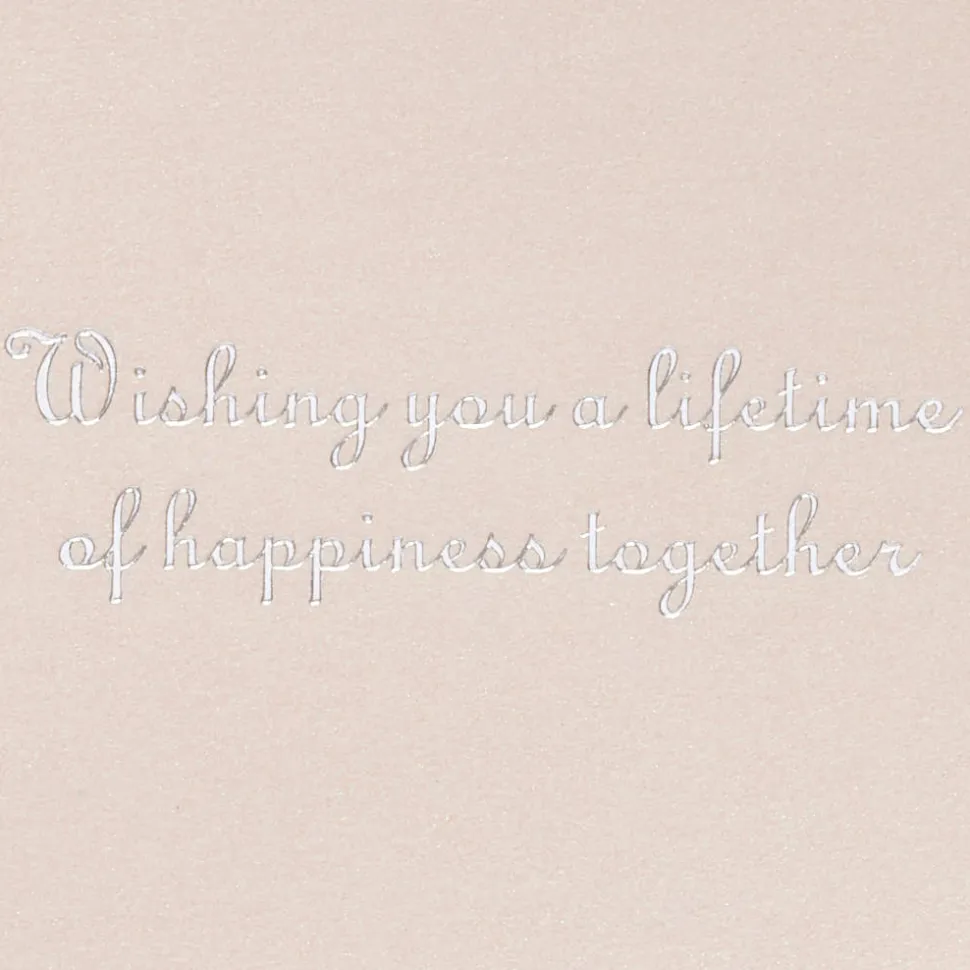 Wishing you a lifetime
of happiness together